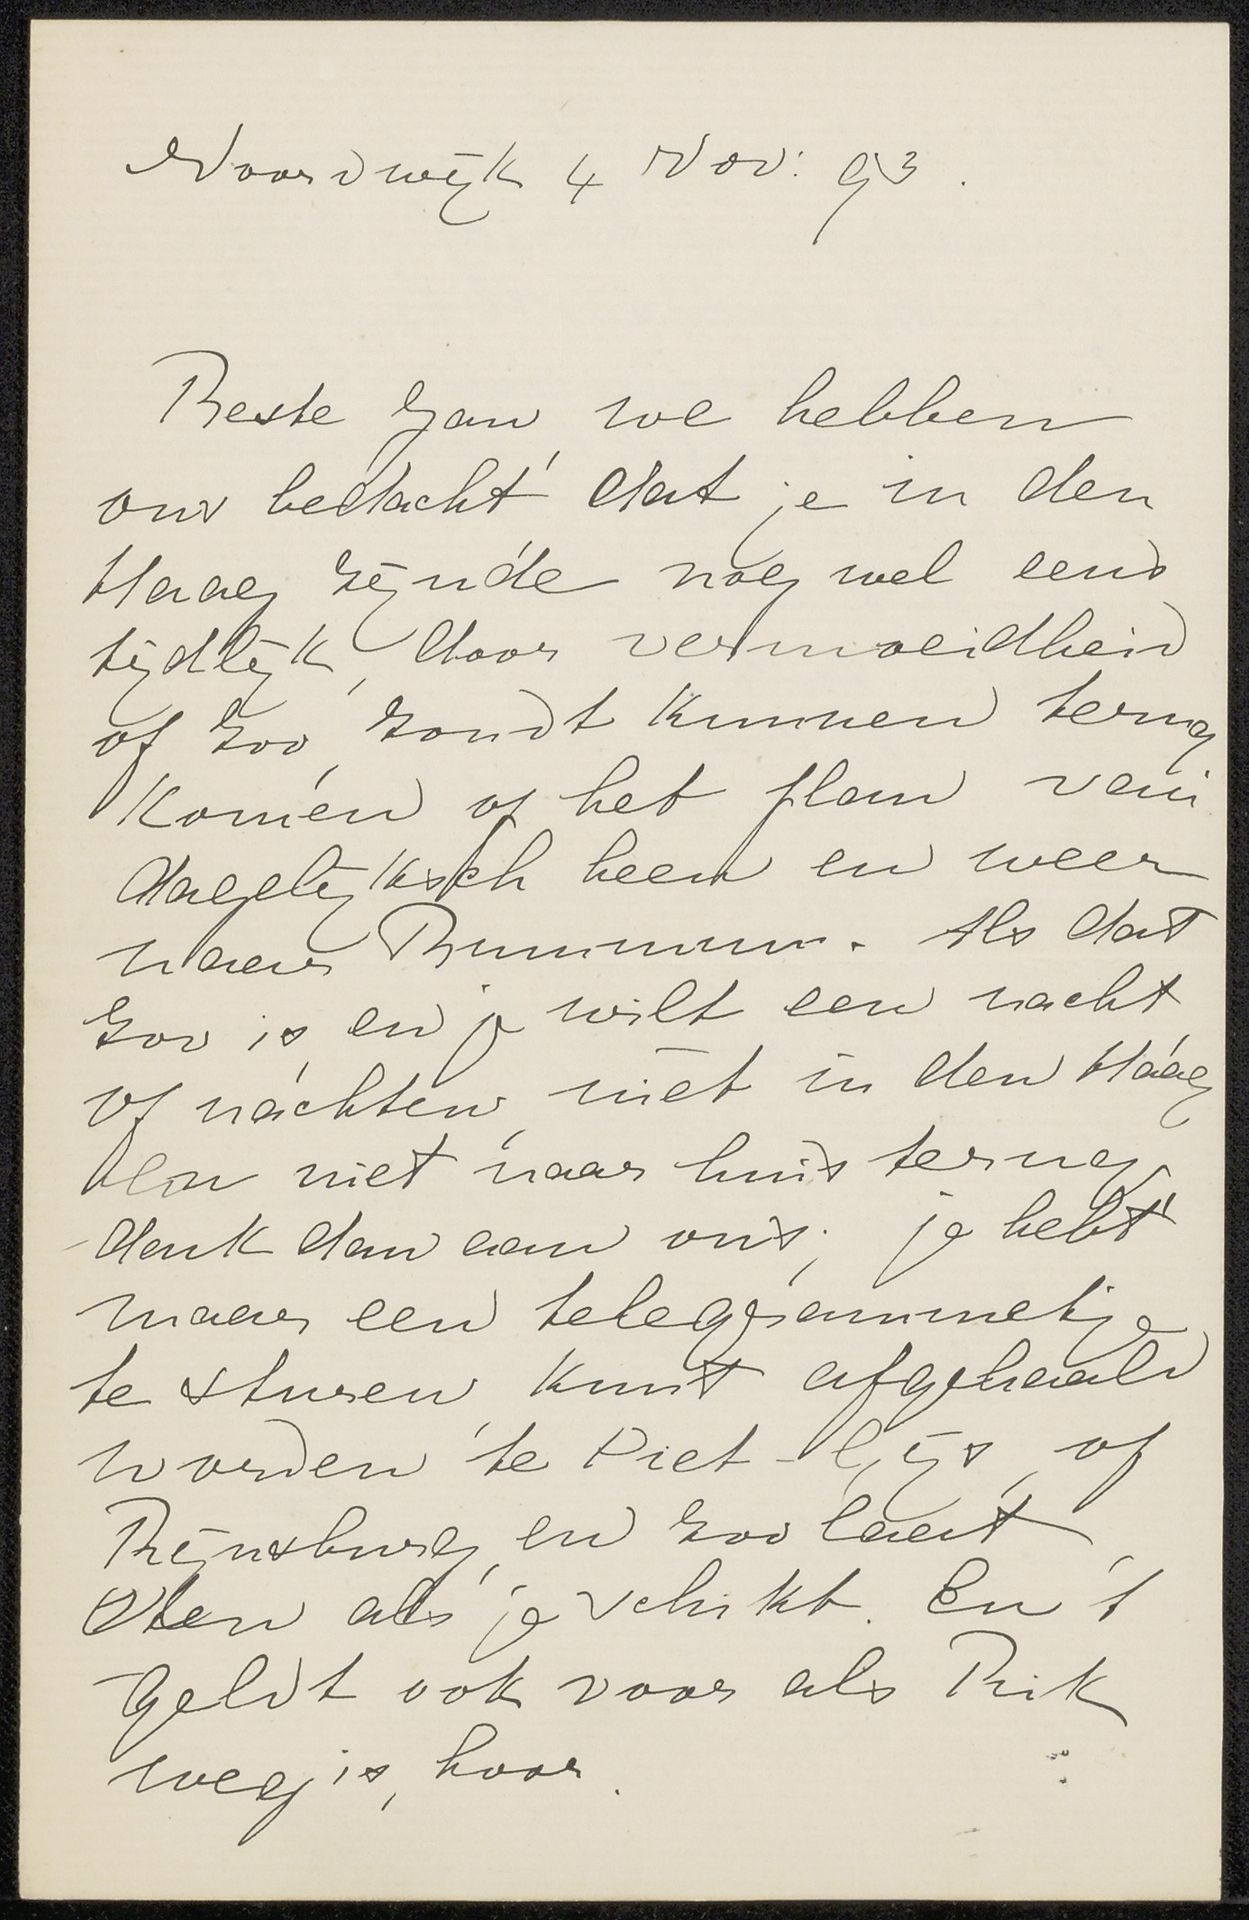 Noordwijk 4 Nov: 93.
Beste Jan, we hebben
ons bedacht dat je in den
Haag zijnde nog wel eens
tijdlijk, door vermoeidheid
of zoo, zoudt kunnen terug
komen op het plan van
dagelijksch heen en weer
naar Bussum. Als dat
zoo is en je wilt een nacht
of nachten, niet in den Haag
en niet naar huis terug
denk dan aan ons; je hebt
maar een telegrammetje
te sturen, kunt afgehaald
worden te Piet-Gijs, of
Rijnsburg, en zoo laat
eten als je schikt. En 't
geldt ook voor als Rik
weg is, hoor.